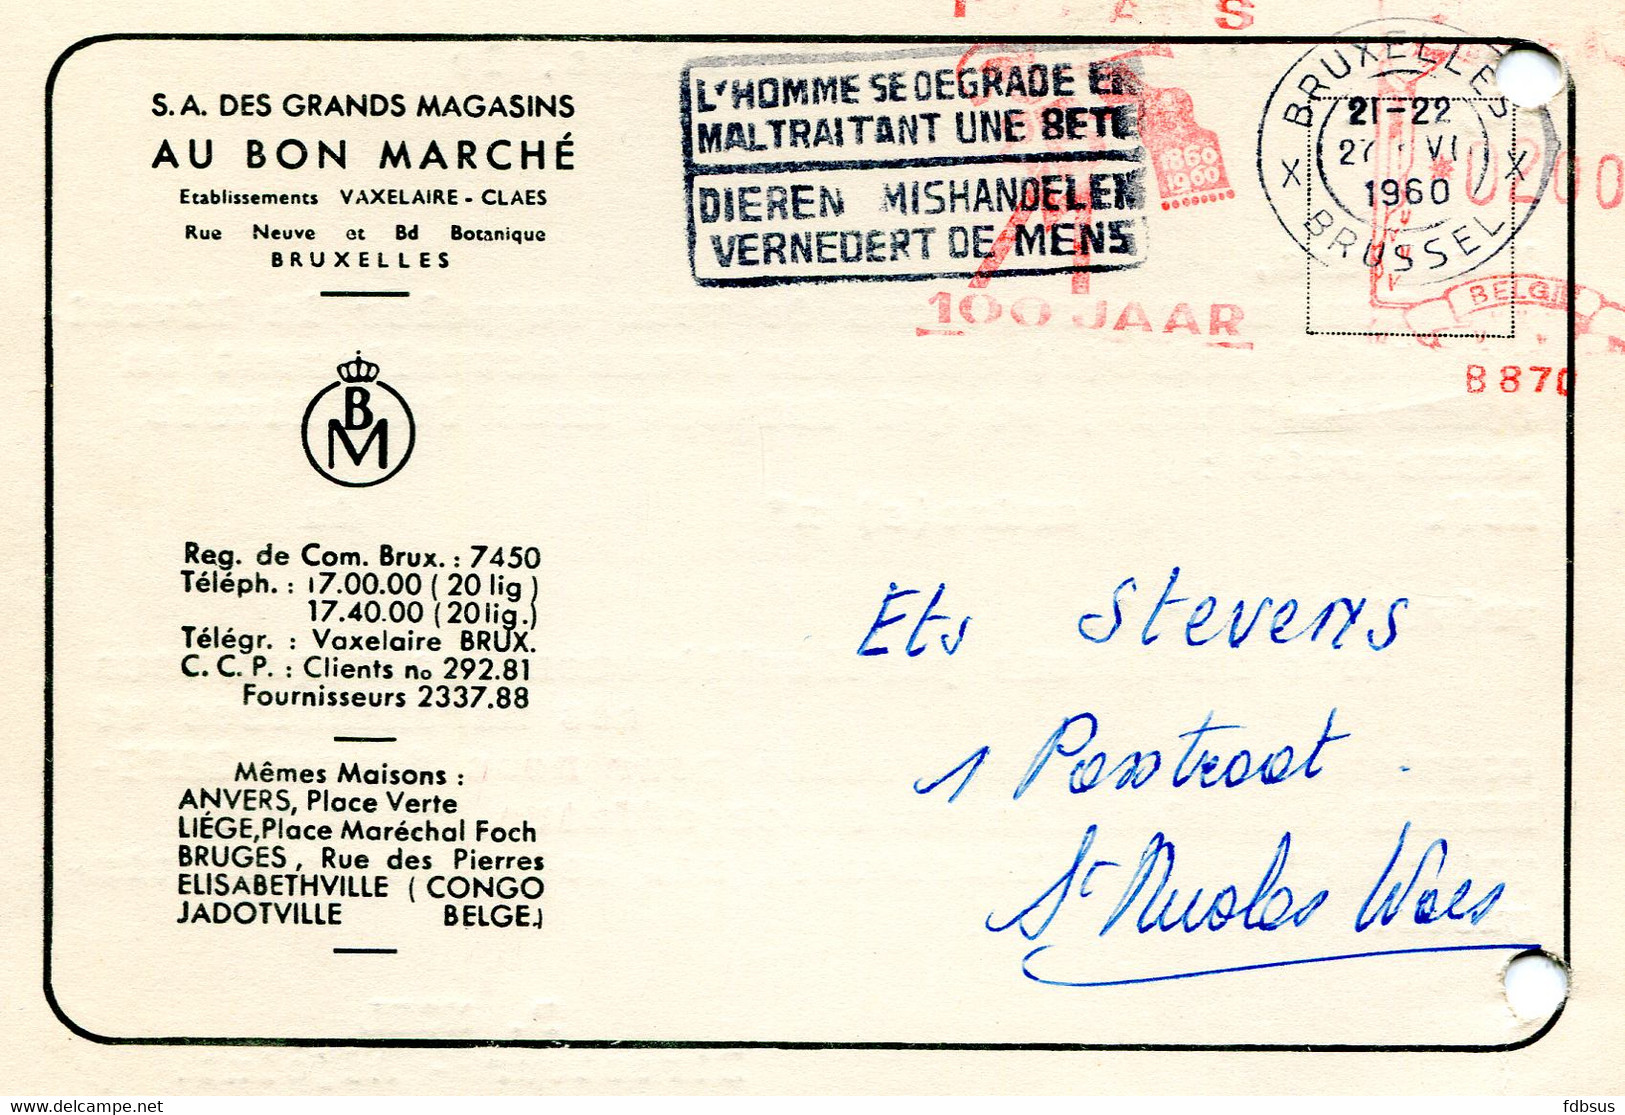 S.A. DES GRANDS MAGASINS
AU BON MARCHÉ
Etablissements VAXELAIRE - CLAES
Rue Neuve et Bd Botanique
BRUXELLES
BM
Reg. de Com. Brux. : 7450
Téléph. : 17.00.00 (20 lig)
17.40.00 (20 lig.)
Télégr. : Vaxelaire BRUX.
C. C. P. : Clients no 292.81
Fournisseurs 2337.88
Mêmes Maisons :
ANVERS, Place Verte
LIÉGE, Place Maréchal Foch
BRUGES, Rue des Pierres
ELISABETHVILLE (CONGO
JADOTVILLE BELGE.)
L'HOMME SE DEGRADE EN
MALTRAITANT UNE BETE
DIEREN MISHANDELEN
VERNEDERT DE MENS
1860
1960
100 JAAR
BRUXELLES
21-22
27 VI
1960
X X
BRUSSEL
0200
BELGIE
B 870
Ets Stevens
1
St Nicolas Waes
fdbsus